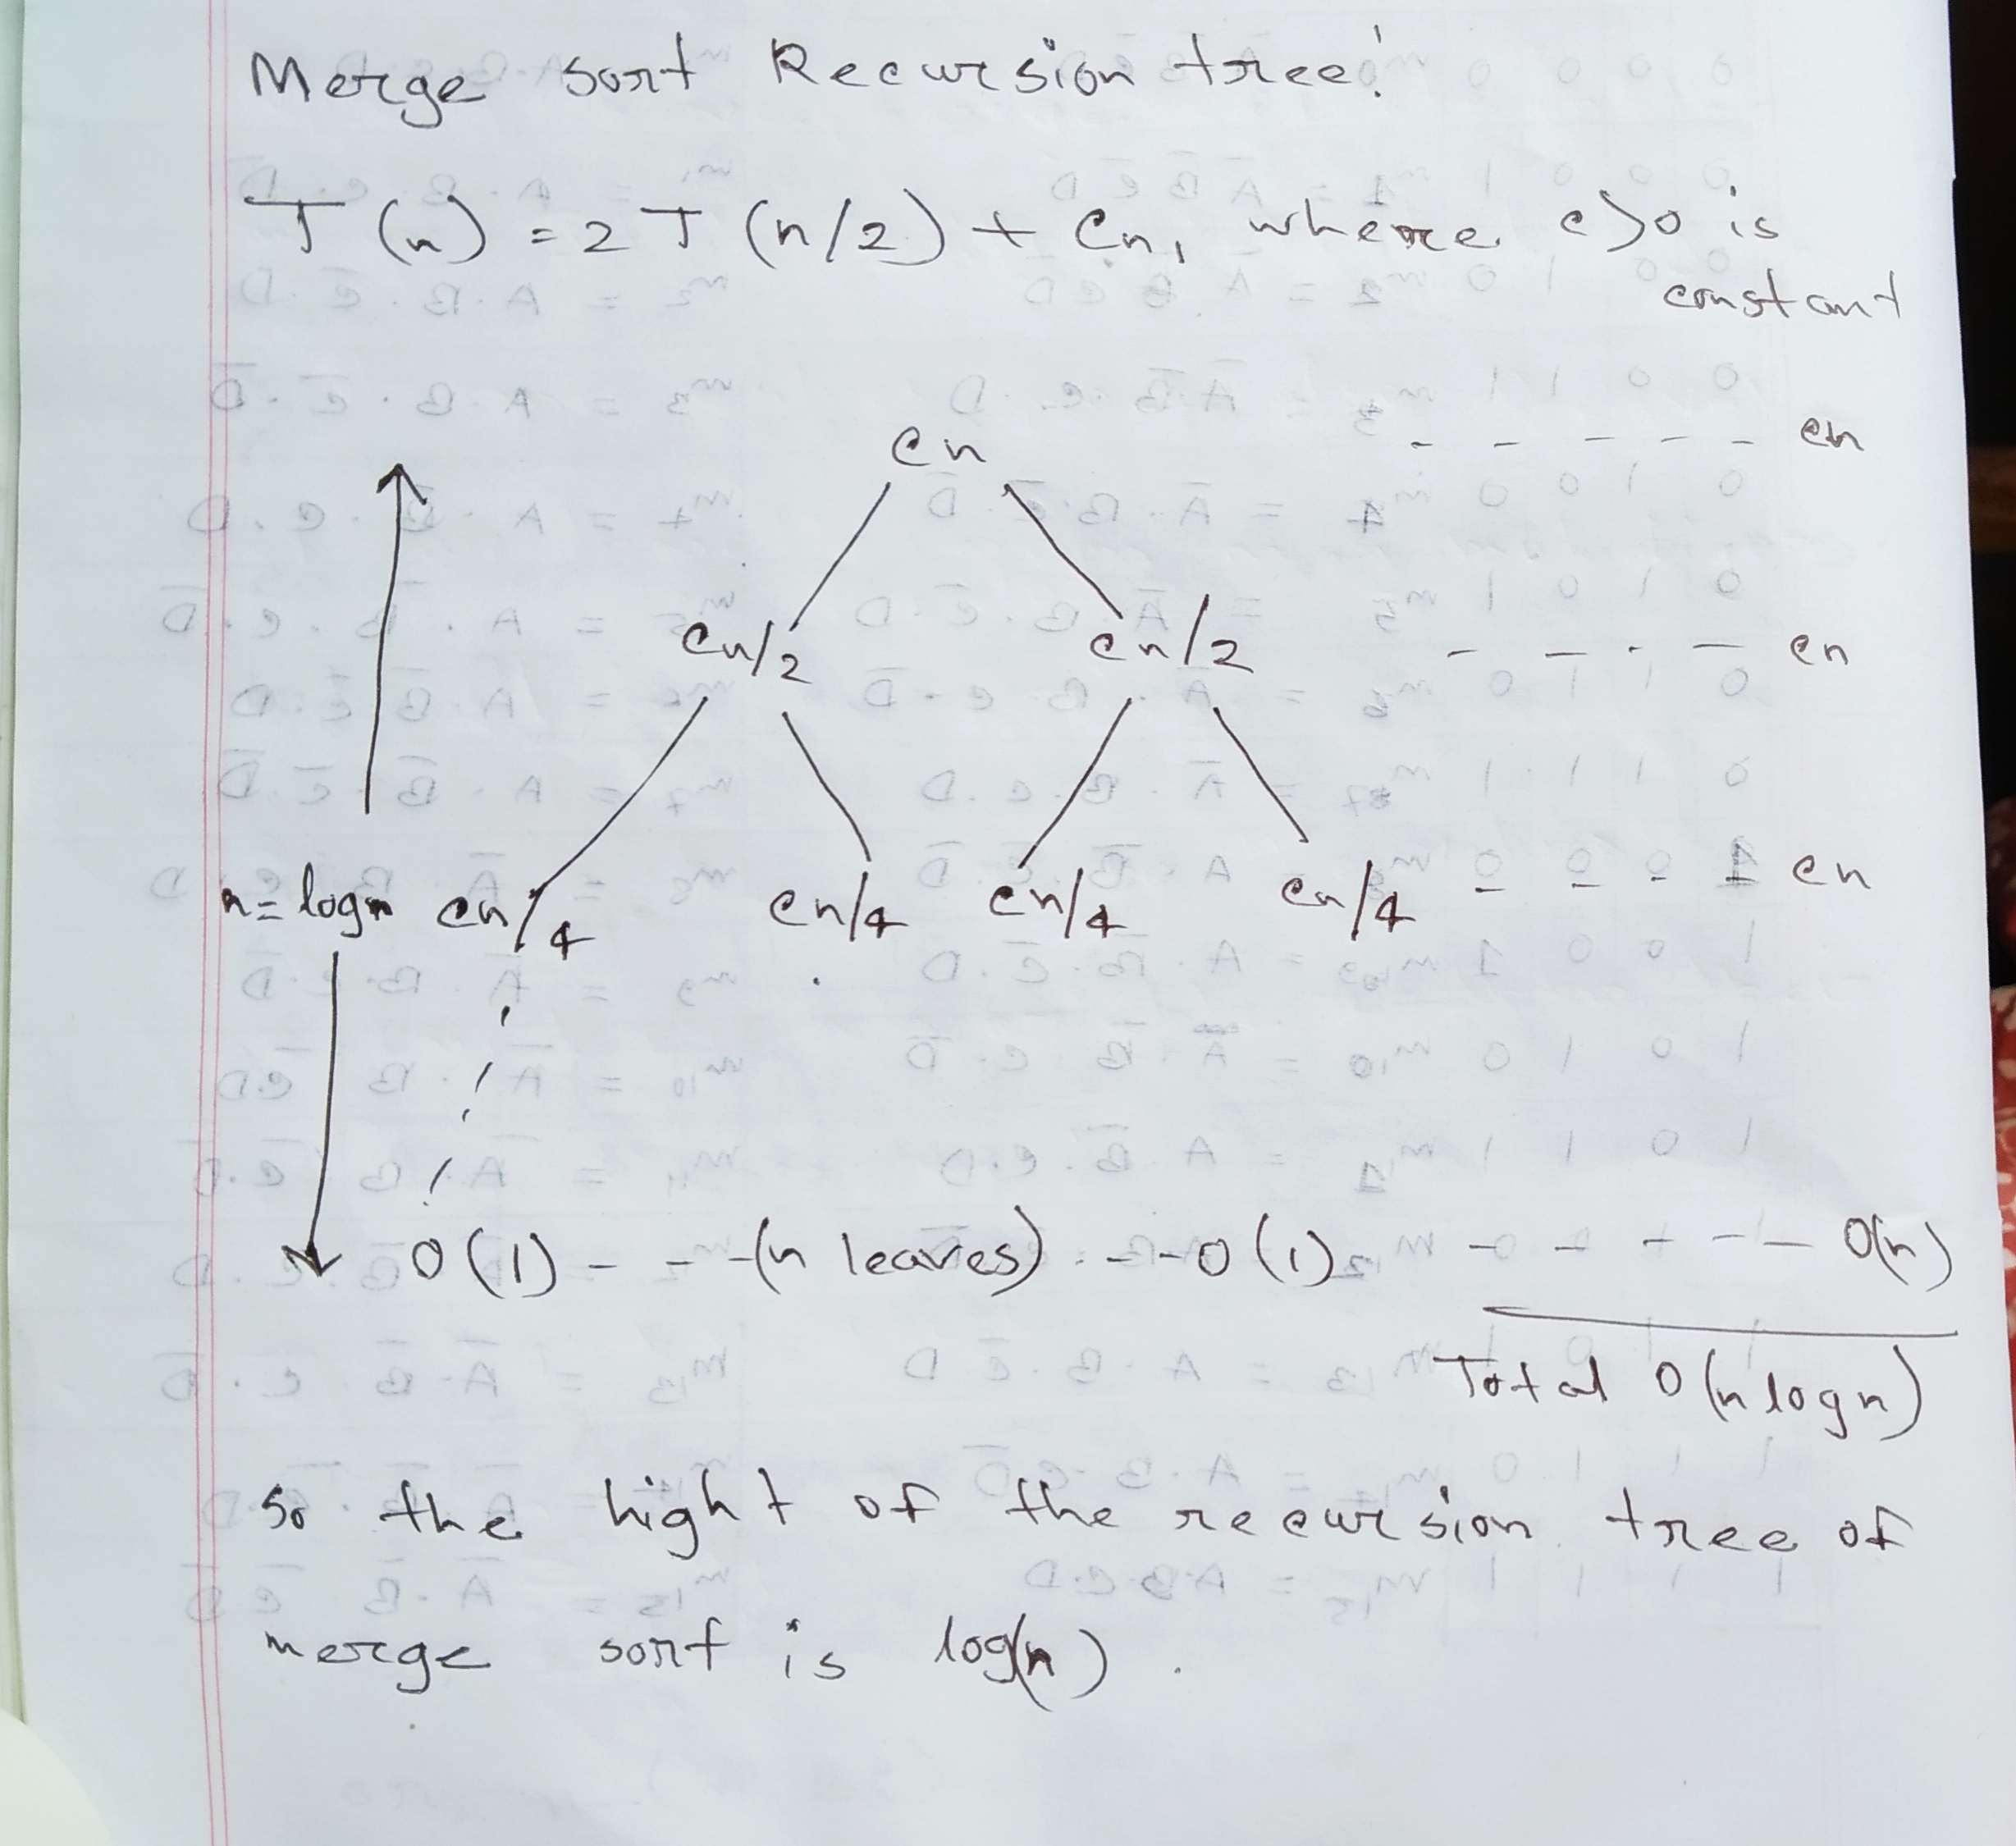 Merge sort Recursion tree:
T(n) = 2T(n/2) + cn, where c>0 is
constant
cn - - - - - cn
cn/2 cn/2 - - - - cn
n = logn cn/4 cn/4 cn/4 cn/4 - - - - cn
O(1) - - - (n leaves) - - - O(1) - - - - - O(n)
Total O(n logn)
So the hight of the recursion tree of
merge sort is log(n).